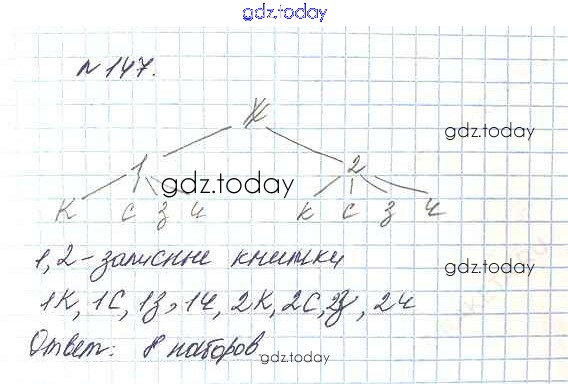 gdz.today
№ 147.
Ж
gdz.today
1 2
gdz.today
К С З Ч К С З Ч
1,2 - записные книжки
gdz.today
1К, 1С, 1З, 1Ч, 2К, 2С, 2З, 2Ч
Ответ: 8 наборов
gdz.today